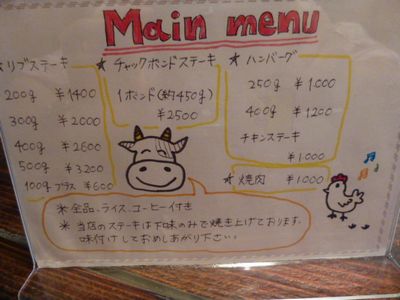 Main menu
★リブステーキ
200g ¥1400
300g ¥2000
400g ¥2600
500g ¥3200
100gプラス ¥600
★チャックポンドステーキ
1ポンド(約450g)
¥2500
★ハンバーグ
250g ¥1000
400g ¥1200
チキンステーキ
¥1000
★焼肉 ¥1000
※全品、ライス、コーヒー付き
※当店のステーキは下味のみで焼き上げております。
味付けしておめしあがり下さい。